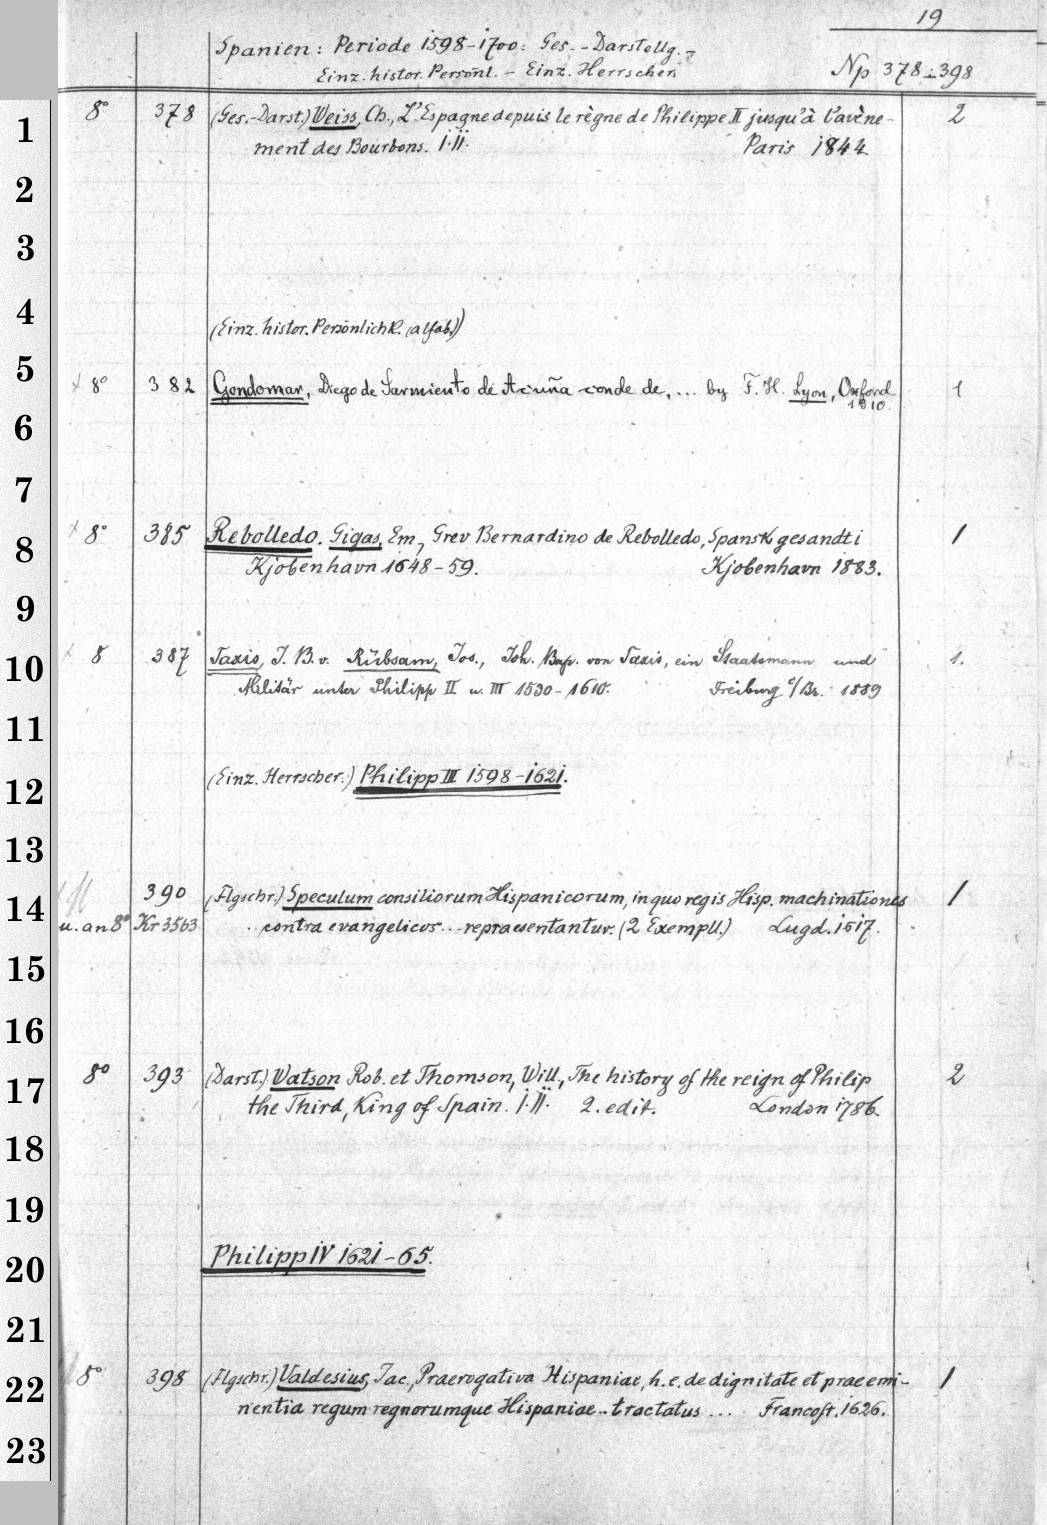 19
Spanien: Periode 1598-1700: Ges.-Darstellg.-
Einz. histor. Persönl. - Einz. Herrscher
Np 378-398
1 8° 378 (Ges.-Darst.) Weiss, Ch., L'Espagne depuis le règne de Philippe II jusqu'à l'avène- 2
ment des Bourbons. I.II. Paris 1844
2
3
4 (Einz. histor. Persönlichk. (alfab.))
5 8° 382 Gondomar, Diego de Sarmiento de Acuña conde de, ... by F. H. Lyon, Oxford 1
1910.
6
7
8 8° 385 Rebolledo. Gigas, Em., Grev Bernardino de Rebolledo, Spansk gesandt i 1
Kjöbenhavn 1648-59. Kjobenhavn 1883.
9
10 8 387 Taxis, J. B. v. Rübsam, Jos., Joh. Bap. von Taxis, ein Staatsmann und 1.
Militär unter Philipp II u. III 1530-1610. Freiburg i/Br. 1889
11
12 (Einz. Herrscher.) Philipp III 1598-1621.
13
14 390 (Flgschr.) Speculum consiliorum Hispanicorum, in quo regis Hisp. machinationes 1
u. an 8° Kr 3563 .. contra evangelicos... repraesentantur. (2 Exempll.) Lugd. 1617.
15
16
17 8° 393 (Darst.) Watson Rob. et Thomson, Will., The history of the reign of Philip 2
the Third, King of Spain. I.II. 2. edit. London 1786.
18
19
20 Philipp IV 1621-65.
21
22 8° 398 (Flgschr.) Valdesius, Jac., Praerogativa Hispaniae, h.e. de dignitate et praeemi- 1
nentia regum regnorumque Hispaniae.. tractatus ... Francoft. 1626.
23